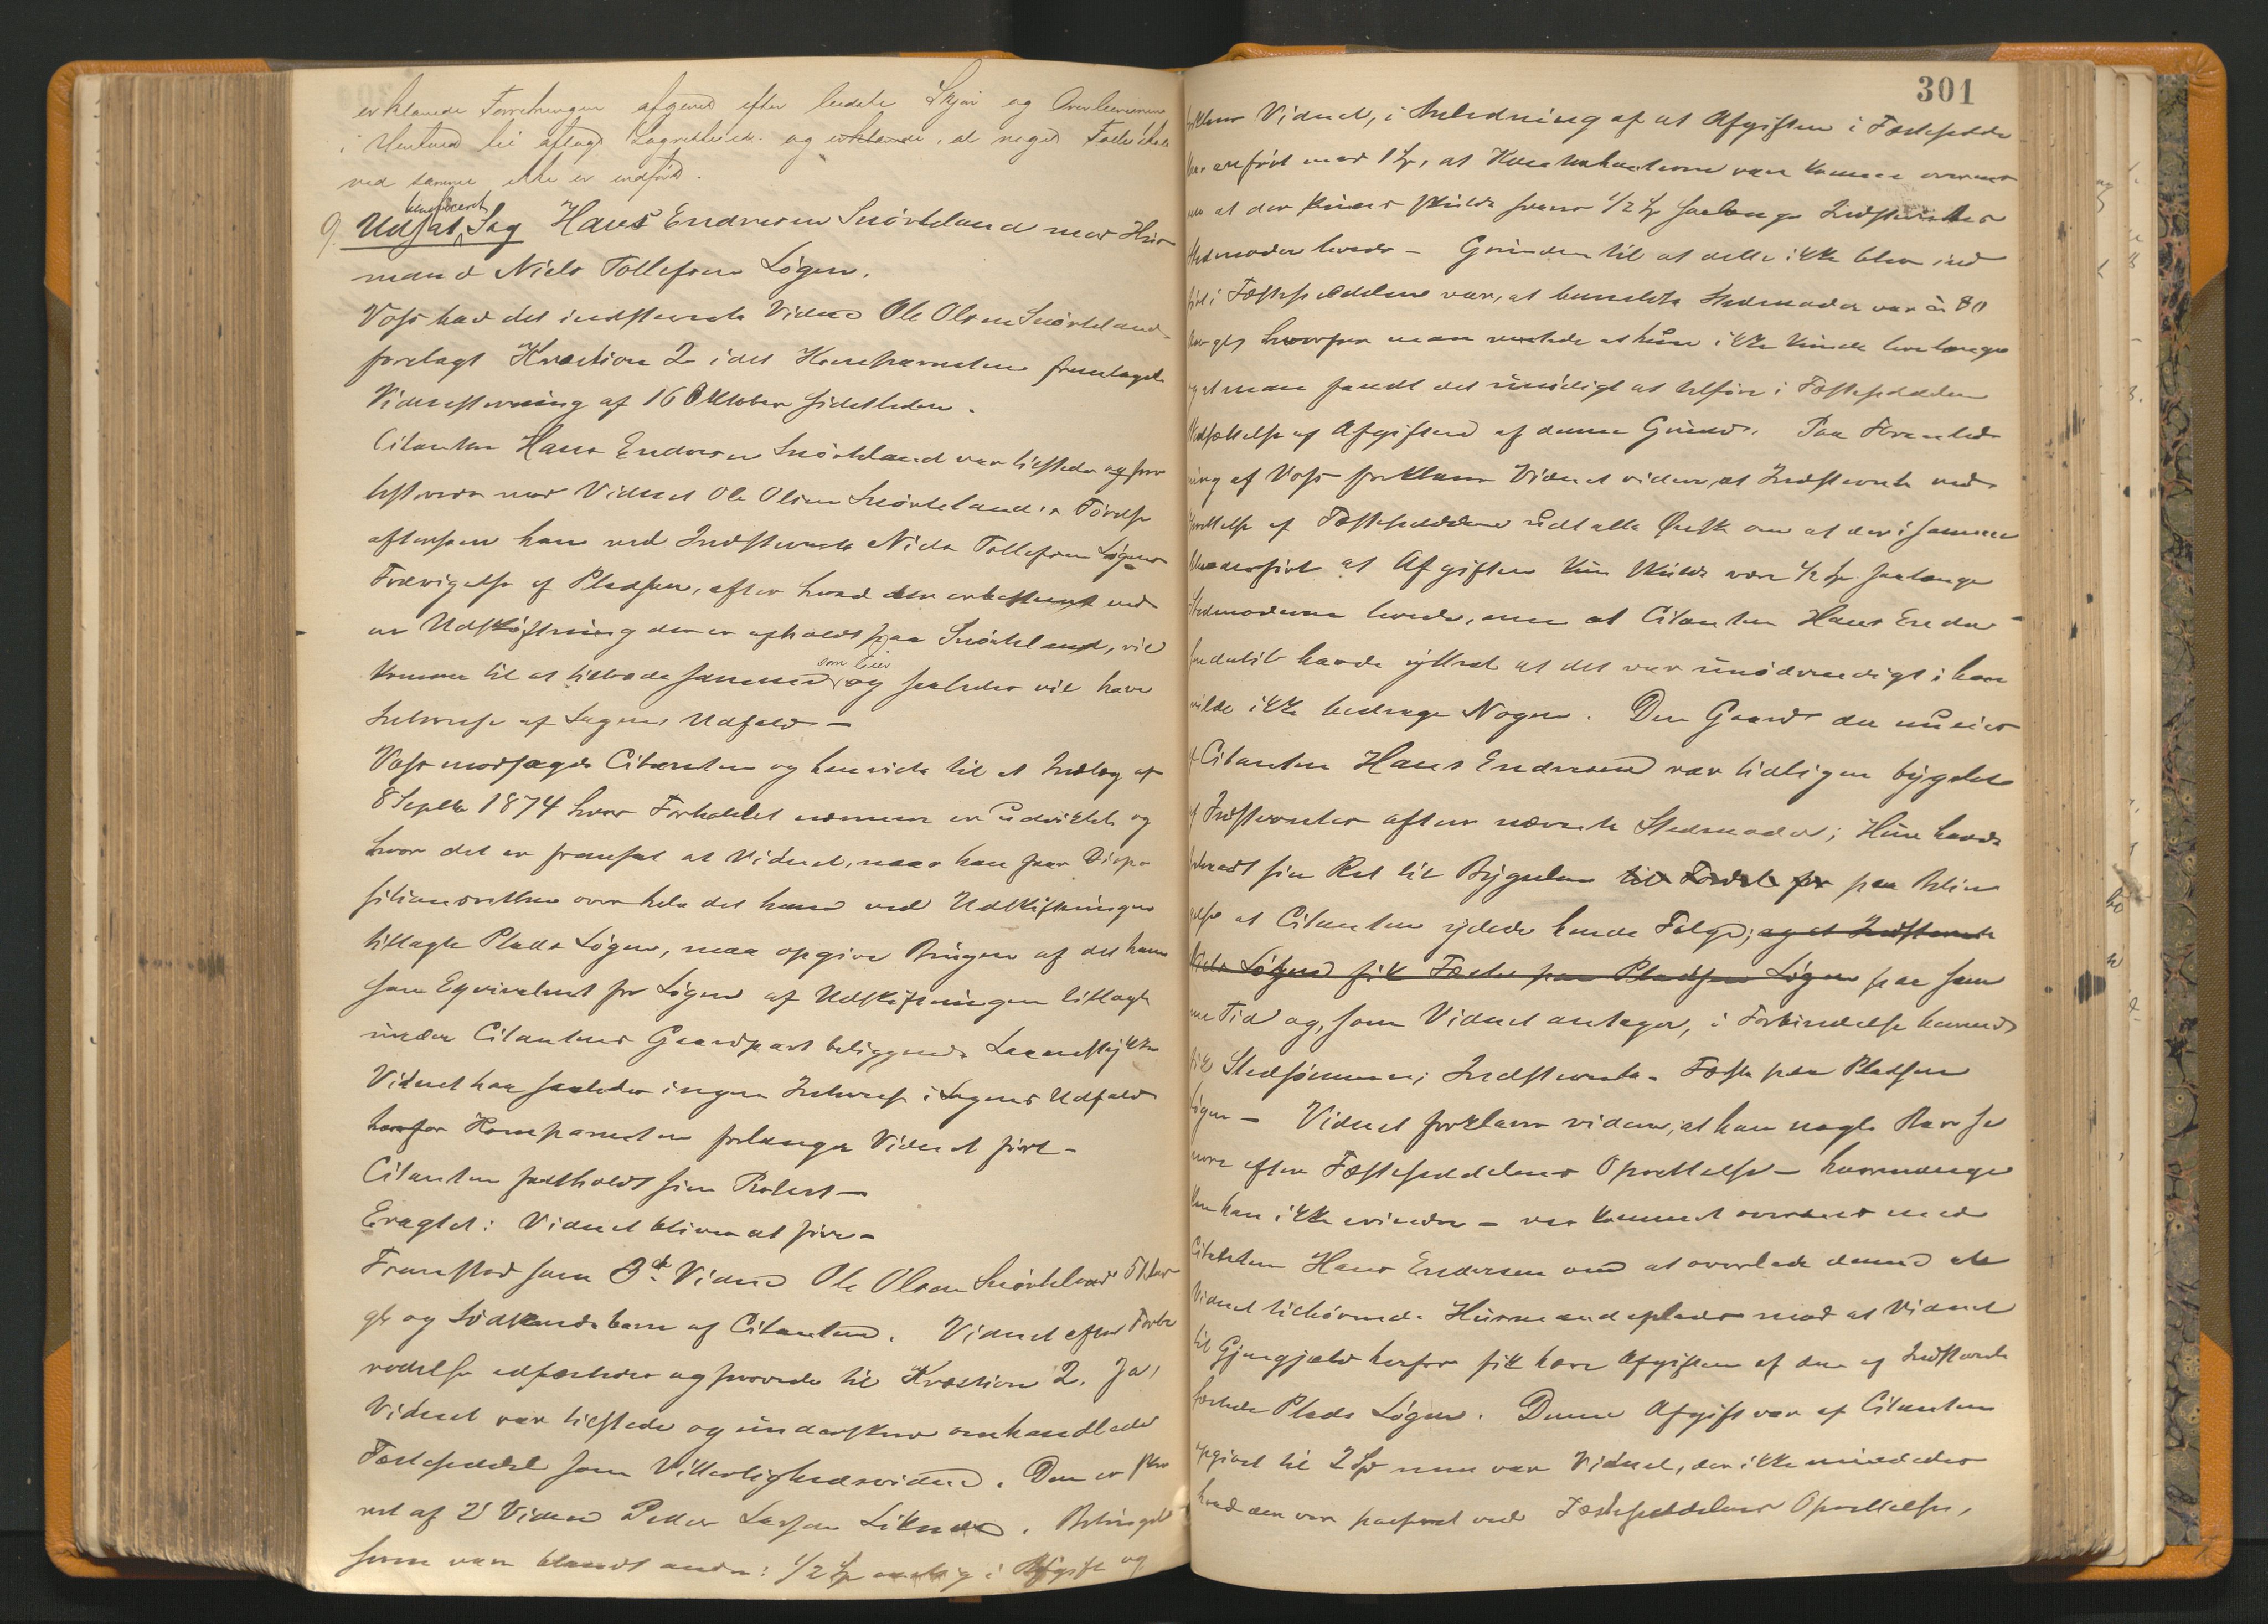 erklærede Forretningen afgiven efter bedste Skjøn og Overbevisning
i Henhold til aflagt Lagretteed. og erklærede, at noget
ved samme ikke er indført.
9. Udsat beneficeret Sag Hans Endresen Snörteland mod Hus-
mand Niels Tollefsen Lögen.
Voss had det indstevnte Vidne Ole Olsen Snörteland
forelagt Kvæstion 2 idet Komparenten fremlagde
Vidnestevning af 16 Oktober sidstleden.
Citanten Hans Endresen Snörteland var tilstede og pro
testerede mod Vidnet Ole Olsen Snörtelands Förelse
eftersom han ved Indstevnte Niels Tollefsen Lögens
Fravigelse af Pladsen, efter hvad der er bestemt ved
en Udskiftning der er afholdt paa Snörteland, vil
komme til at tiltræde samme som Eier og saaledes vil have
Interesse af Sagens Udfald –
Voss modsagde Citanten og henviste til et Indlæg af
8 Septbr 1874 hvor Forholdet nærmere er udviklet og
hvor det er fremsat at Vidnet, naar han faar Dispo-
sitionsretten over hele det ham ved Udskiftningen
tillagte Plads Lögen, maa opgive Brugen af det ham
som Eqvivalent for Lögen af Udskiftningen tillagte
under Citantens Gaardpart beliggende
Vidnet har saaledes ingen Interesse i Sagens Udfald
hvorfor Komparenten forlanger Vidnet fört –
Citanten fastholdt sin Protest –
Eragtet: Vidnet bliver at före –
Fremstod som 3die Vidne Ole Olsen Snörteland
gl. og Södskendebarn af Citanten. Vidnet efter Forbe
redelse edfæstedes og svarede til Kvæstion 2. Ja,
Vidnet var tilstede og underskrev omhandlede
Fæsteseddel som Vitterlighedsvidne. Den er skre
vet af 2det Vidne Peder Larsen . Betingel
serne var blandt andre: 1/2 Sp aarlig i Afgift og
301
forklarer Vidnet, i Anledning af at Afgiften i Fæstesedde
len er anfört med 1 Sp, at Kontrahenterne vare komne overens
om at der kuns skulde svares 1/2 Sp saalænge Indstevntes
Stedmoder levede – Grunden til at dette ikke blev ind
fört i Fæstesedlen var, at bemeldte Stedmoder var ca 80
Aar gl, hvorfor man ventede at hun ikke kunde leve længe
og at man fandt det unödigt at tilföie i Fæstesedlen
Nedsættelse af Afgiften af denne Grund. Paa Foranled
ning af Voss forklarer Vidnet videre, at Indstevnte ved
Oprettelse af Fæstesedlen udtalte Önske om at der i samme
blev anfört at Afgiften kun skulde være 1/2 Sp saalænge
Stedmoderen levede, men at Citanten Hans Endre-
sen dertil havde yttret at det var unödvendigt; han
vilde ikke bedrage Nogen. Den Gaard der nu eies
af Citanten Hans Endresen var tidligere bygslet
af Indstevntes efter nævnte Stedmoder; Hun havde
fraveget sin Ret til Bygselen til Fordel for paa Betin
gelse at Citanten ydede hende Folge; og at Indstevnte
Niels Lögen fik Fæste paa Pladsen Lögen paa sam
me Tid og, som Vidnet antager, i Forbindelse hermed
fik Stedsönnen, Indstevnte – Fæste paa Pladsen
Lögen – Vidnet forklarer videre, at han nogle Aar se
nere efter Fæstesedlens Oprettelse – hvormange
Aar kan han ikke erindre – var kommet overens med
Citanten Hans Endresen om at overlade denne et
Vidnet tilhörende Husmandsplads mod at Vidnet
til Gjengjæld herfor fik have Afgiften af den af Indstevnte
fæstede Plads Lögen. Denne Afgift var af Citanten
opgivet til 2 Sp men var Vidnet, der ikke mindedes
hvad der var passeret ved Fæstesedlens Oprettelse,